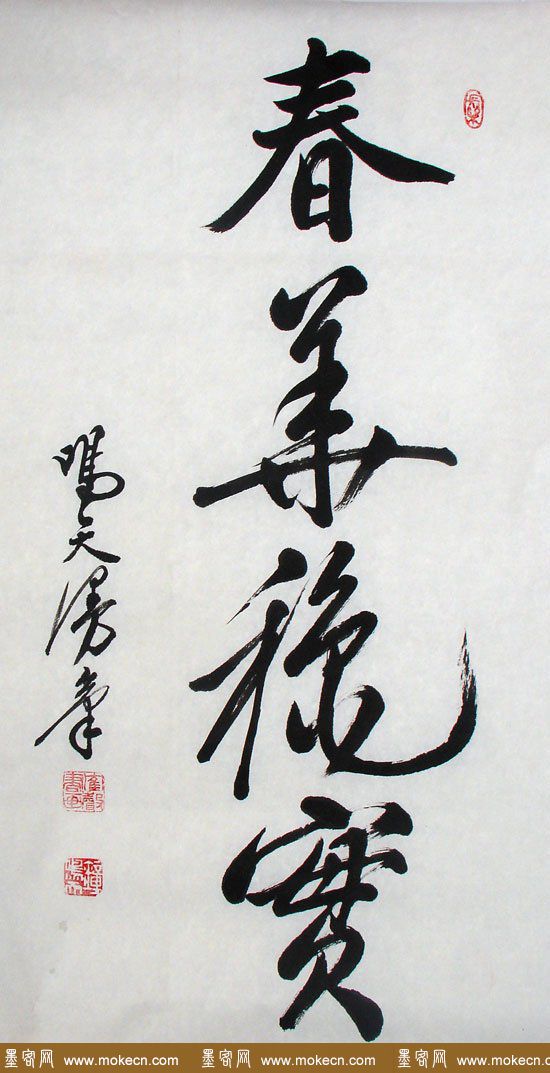 春華穐實
鳴天
墨客网 www.mokecn.com 墨客网 www.mokecn.com 墨客网 www.mokecn.com